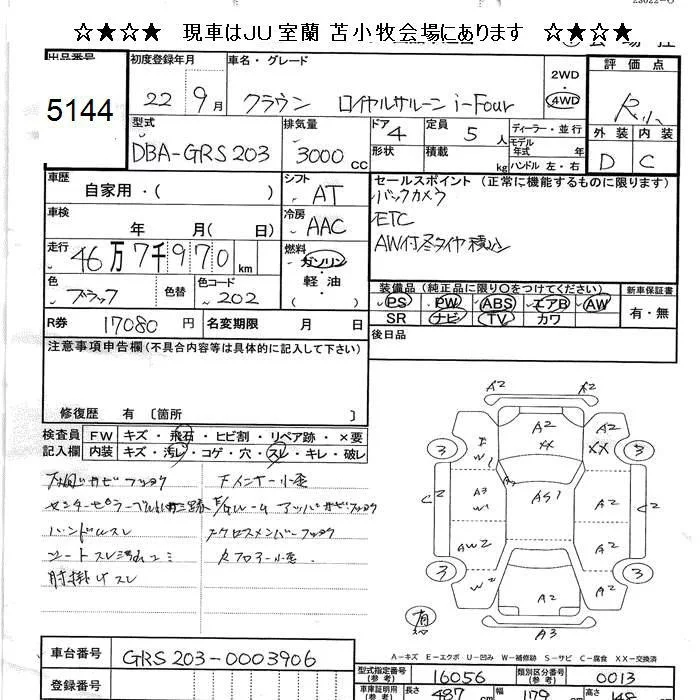 ☆★☆★ 現車はJU室蘭 苫小牧会場にあります ☆★☆★
出品番号
5144
初度登録年月
22 9月
車名・グレード
クラウン ロイヤルサルーン i-Four
2WD
・
4WD
評価点
R
外装 内装
D C
型式
DBA-GRS203
排気量
3000 CC
ドア 4
形状
定員 5 人
積載 kg
ディーラー・並行
モデル年式 年
ハンドル 左・右
車歴
自家用・( )
車検
年 月( 日)
走行
46万7千970 km
色
ブラック
色替
色コード
202
シフト
AT
冷房
AAC
燃料
ガソリン
・
軽油
・( )
セールスポイント (正常に機能するものに限ります)
バックカメラ
ETC
AW付冬タイヤ積込
装備品 (純正品に限り〇をつけてください)
PS PW ABS エアB AW
SR ナビ TV カワ
新車保証書
有・無
R券 17080 円
名変期限 月 日
後日品
注意事項申告欄(不具合内容等は具体的に記入して下さい)
修復歴 有 〔箇所 〕
検査員記入欄
FW キズ・飛石・ヒビ割・リペア跡・×要
内装 キズ・汚レ・コゲ・穴・スレ・キレ・破レ
下回りサビ
ハンドルスレ
シートスレ
肘掛けスレ
A2 A2
3 3
A2
XX
XX
A2
C2 C2
A3
W1
A51
A2
AW2
A2
W2
A2
A2
3 3
A3
A-キズ E-エクボ U-凹み W-補修跡 S-サビ C-腐食 XX-交換済
車台番号
GRS203-0003906
登録番号
型式指定番号
(参考)
16056
類別区分番号
(参考)
0013
車庫証明用
(参考)
長さ 487 幅 179 高さ 148